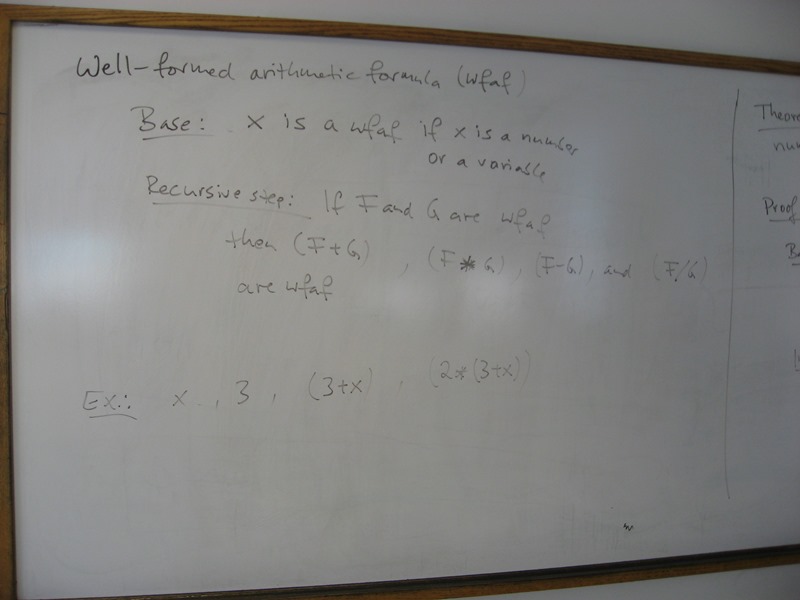 Well-formed arithmetic formula (wfaf)
Base: x is a wfaf if x is a number
or a variable
Recursive step: If F and G are wfaf
then (F+G) , (F*G), (F-G), and (F/G)
are wfaf
Ex.: x , 3 , (3+x) , (2*(3+x))
Proof